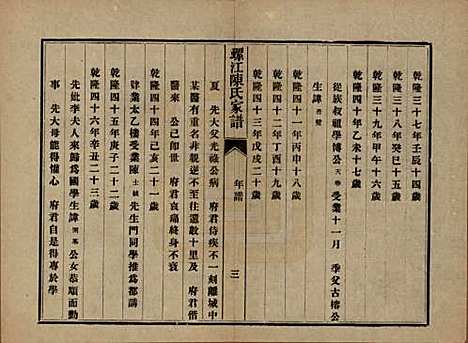 乾隆三十七年壬辰十四歲
乾隆三十八年癸巳十五歲
乾隆三十九年甲午十六歲
乾隆四十年乙未十七歲
從族叔祖學博公天受業十一月 季父古榕公
生譚
乾隆四十一年丙申十八歲
乾隆四十二年丁酉十九歲
乾隆四十三年戊戌二十歲
螺江陳氏家譜
年譜
三
夏 先大父光祿公病 府君侍疾不一刻離城中
某醫有重名非親逆不至往還數十里及 府君偕
醫來 公已卽世 府君哀痛終身不衰
乾隆四十四年己亥二十一歲
肄業太乙樓受業陳士先生門同學推為都講
乾隆四十五年庚子二十二歲
乾隆四十六年辛丑二十三歲
先妣李夫人來歸為國學生諱公女恭順面勤
事 先大母能得懽心 府君自是得專於學